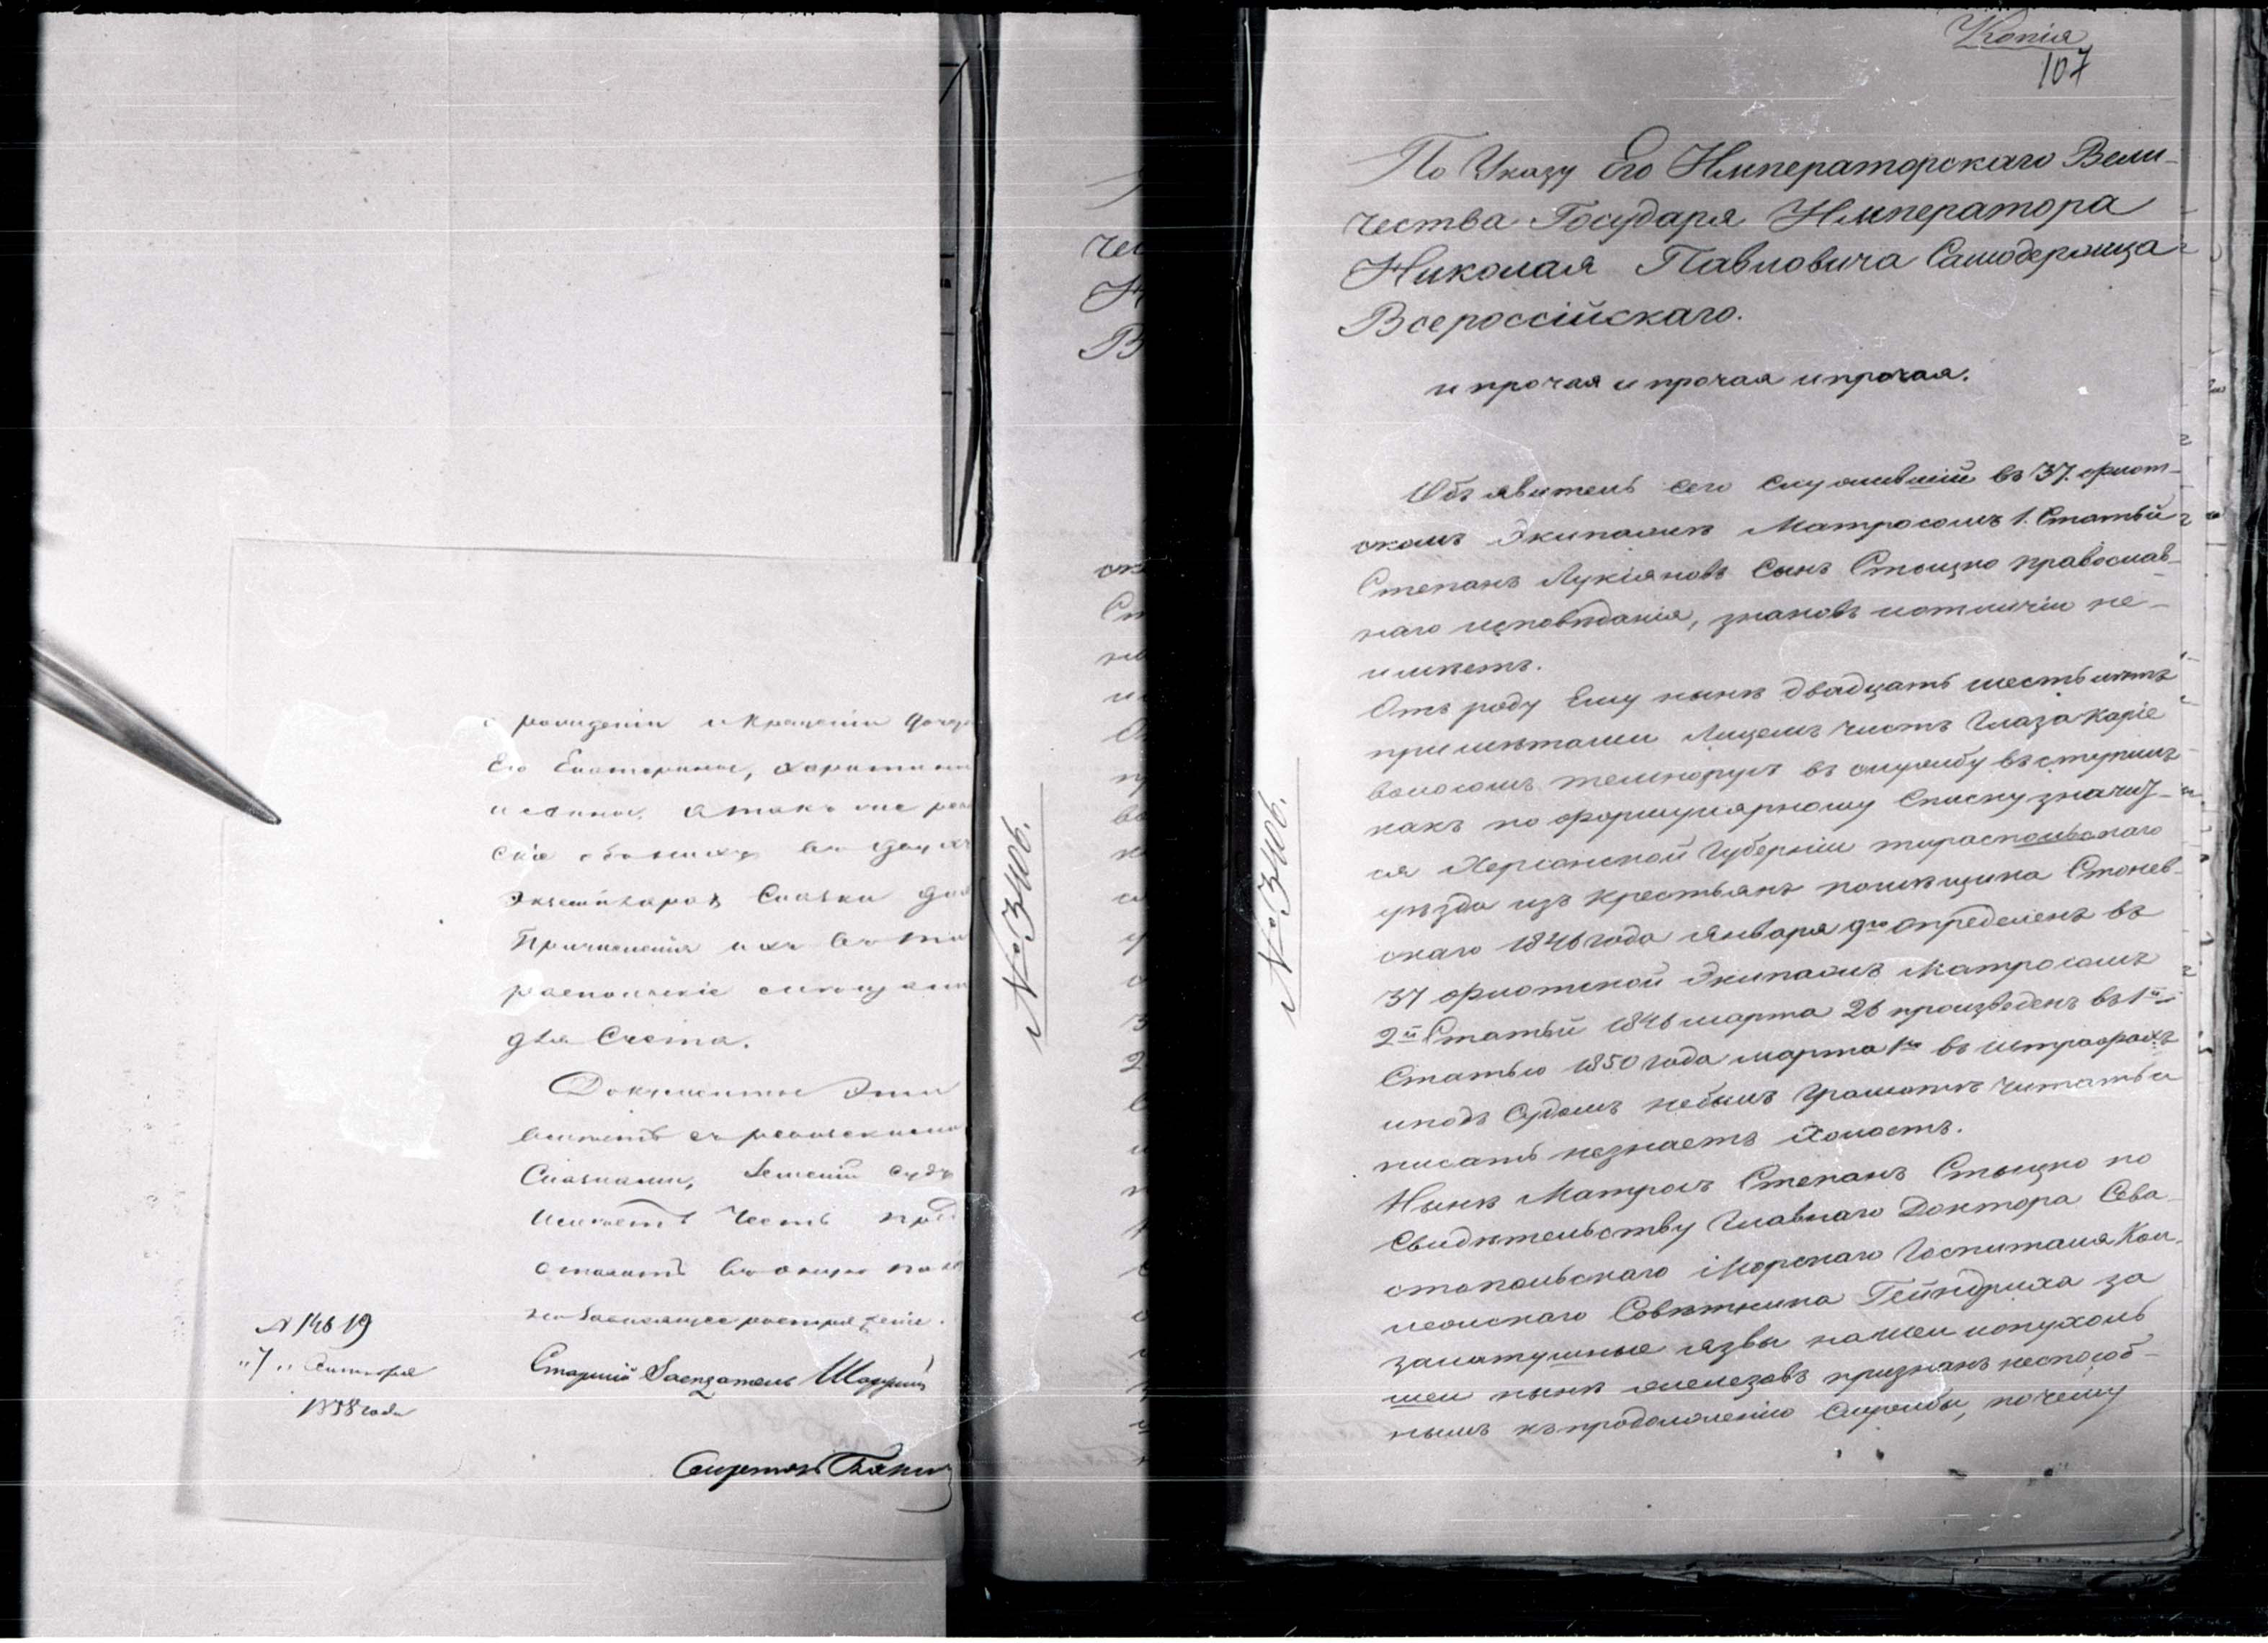 о рождении и крещении дочери
Его Екатерины, Харитины
и Анны, а так же реви
скія объ нихъ въ двухъ
Экземплярахъ Сказки для
Причисленія ихъ въ Ти
распольскіе мещане
для Счета.
Документы Эти
вместе съ ревизскими
Сказками, Земский судъ
имеетъ честь пред
ставить въ оную пала
на зависящее распоряжение.
Старшій Заседатель
Секретарь
N 14619
"7" Сентября
1858 года
№ 3406.
Копія
107
По Указу Его Императорскаго Вели-
чества Государя Императора
Николая Павловича Самодержца
Всероссійскаго.
и прочая и прочая и прочая.
Объявитель сего служившій въ 37. флот-
скомъ Экипаже Матросомъ 1. Статьи
Степанъ Лукіяновъ сынъ Стоцко православ-
наго исповеданія, знаковъ и отличіи не-
имеетъ.
Отъ роду Ему ныне двадцать шесть летъ
приметами Лицемъ чистъ Глаза Каріе
волосомъ темнорусъ въ службу вступилъ
какъ по формулярному Списку значит-
ся Херсонской Губерніи тираспольскаго
уезда изъ крестьянъ помещика Стонев-
скаго 1846 года января 9го определенъ въ
37 флотской Экипажъ Матросомъ
2й Статьи 1846 марта 26 произведенъ въ 1ю
Статью 1850 года марта 1го въ штрафахъ
и подъ Судомъ небылъ Грамоте читать и
писать незнаетъ Холостъ.
Ныне Матросъ Степанъ Стоцко по
Свидетельству Главнаго Доктора Сева-
стопольскаго Морскаго Госпиталя Кол-
лежскаго Советника Гейндриха за
золотушные язвы на шеи и опухоль
шеи ныне железовъ признанъ неспособ-
нымъ къ продолженію Службы, почему